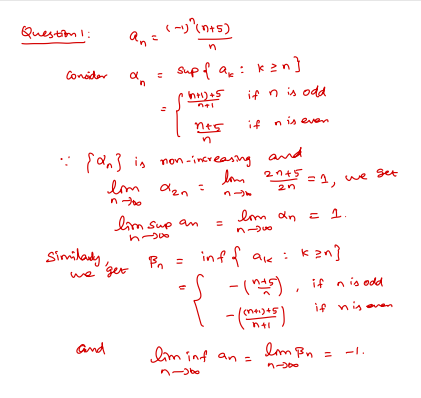 Question 1: a_n = (-1)^n (n+5) / n
Consider α_n = sup { a_k : k ≥ n }
= { (n+1)+5 / n+1 if n is odd
n+5 / n if n is even
∵ {α_n} is non-increasing and
lim n→∞ α_2n = lim n→∞ 2n+5 / 2n = 1, we get
lim sup n→∞ a_n = lim n→∞ α_n = 1.
Similarly, we get β_n = inf { a_k : k ≥ n }
= { -(n+5 / n), if n is odd
-((n+1)+5 / n+1) if n is even
and lim inf n→∞ a_n = lim n→∞ β_n = -1.